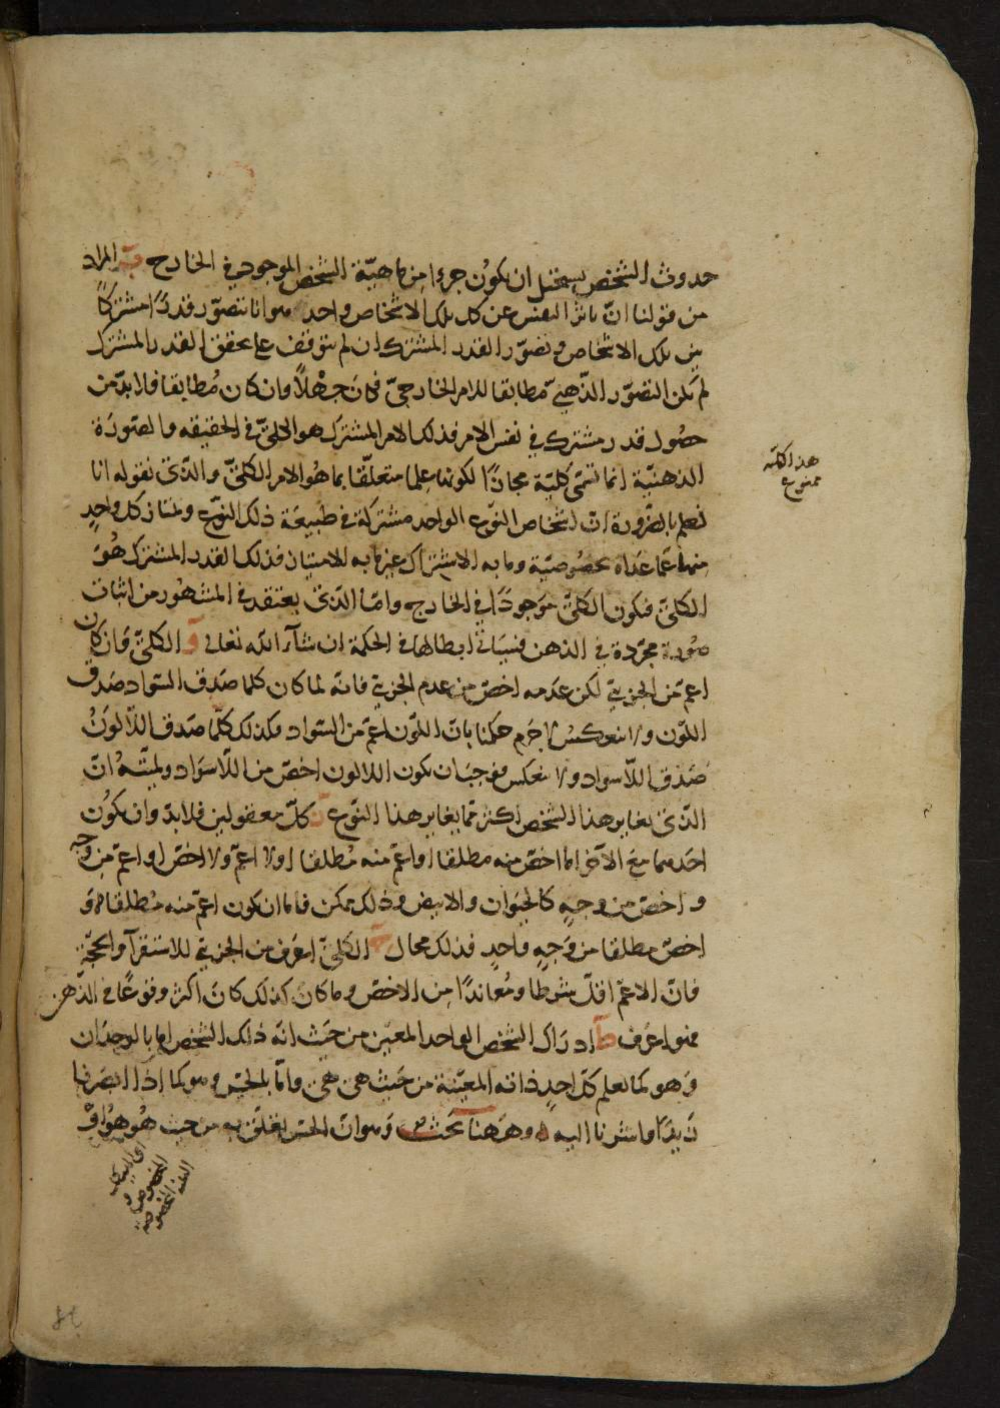 حدوث الشخص يستحيل ان يكون جزءا من ماهيّة الشخص الموجود في الخارج المراد
من قولنا انّ تاثر النفس عن كل تلك الاشخاص واحد هو انا نتصوّر قدرًا مشتركًا
بين تلك الاشخاص وتصوّر القدر المشترك ان لم يتوقف على تحقق القدر المشترك
لم يكن التصوّر الذّهنيّ مطابقا للامر الخارجيّ فكان جهْلًا وان كان مُطابقا فلا بدّ من
حصُول قدر مشترك في نفس الامر فذلك الامر المشترك هو الكليّ في الحقيقه والصّورَة
الذهنيّة انما تسمّى كليّة مجازًا لكونها علما متعلّقا بما هُو الامر الكليّ والّذي نقوله انا
نعلم بالضّرورة انّ اشخاص النّوع الواحد مشتركة في طبيعَة ذلك النّوع وممتاز كل واحدٍ
منها عمّا عداه بخصُوصيّة وما به الاشتراك غير ما به الامتياز فذلك القدر المشترك هُوَ
الكليّ فيكون الكليّ موجودًا في الخارج وامّا الّذي يعتقد في المشهُور من اثبات
صُورة مجرّدة في الذهن فسيَاتي ابطالها في الحكمة ان شآء الله تعالى وَ الكليّ وَان كان
اعمّ من الجزيّ لكن عدَمه اخصّ من عدم الجزيّ فانه لما كان كلما صَدق السّواد صَدق
اللّون ولا ينعكسُ لا جَرم حَكمنا بانّ اللّون اعمّ من السّواد فكذلك كلّما صَدق اللّالونُ
صَدق اللّاسواد ولا ينعكس فوجبَ ان يكون اللالون اخصّ من اللّاسوَاد وليتنبّه انّ
الّذي يغاير هذا الشخص اكثر ممّا يغاير هذا النّوع كلّ معقولين فلا بدّ وان يكُون
احدهما مع الآخر امّا اخصّ منه مطلقا او اعمّ منه مُطلقا او لا اعمّ ولا اخصّ او اعمّ من وجه
و اخصّ من وجهٍ كالحيَوان والابيض وذلك ممكن فامّا ان يكون اعمّ منه مُطلقا
اخصّ مطلقا من وَجهٍ واحدٍ فذلك محال الكَليّ اعرَف من الجزيّ للاستقرآ والحجّة
فانّ الاعمّ اقلّ شرطا ومُعاندًا من الاخصّ وما كان كذلك كانَ اكثر وقوعًا في الذّهن
فهو اعرَف طآ ادرَاك الشخص الواحد المعيّن من حَيث انّه ذلك الشخص امّا بالوجدَان
وَهو كما يعلم كلّ احدٍ ذاته المعيّنة من حَيث هي هي وامّا بالحسّ وهو كما اذا ابصَرنا
زيدًا واشرنا اليه وههَنا بحَث وَهو انّ الحسّ تعلق به من حيث هُو هُو اوْ
هذه الكليّه
ممنوع